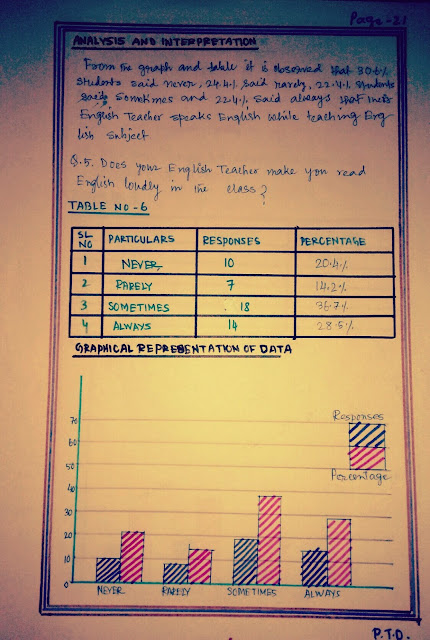 Page-21
ANALYSIS AND INTERPRETATION
From the graph and table it is observed that 30.6%
students said never, 24.4% said rarely, 22.4% students
said sometimes and 22.4% said always that their
English Teacher speaks English while teaching Eng
lish subject
Q.5. Does your English Teacher make you read
English loudly in the class?
TABLE NO-6
SL NO PARTICULARS RESPONSES PERCENTAGE
1 NEVER 10 20.4%
2 RARELY 7 14.2%
3 SOMETIMES 18 36.7%
4 ALWAYS 14 28.5%
GRAPHICAL REPRESENTATION OF DATA
Responses
Percentage
70
60
50
40
30
20
10
0
NEVER RARELY SOMETIMES ALWAYS
P.T.O.